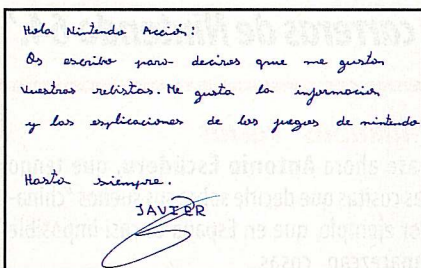 correras de Nintendo 64.
Hola Nintendo Acción:
Os escribo para deciros que me gustan
vuestras rebistas. Me gusta la informacion
y las esplicaciones de los juegos de nintendo
Hasta siempre.
JAVIER